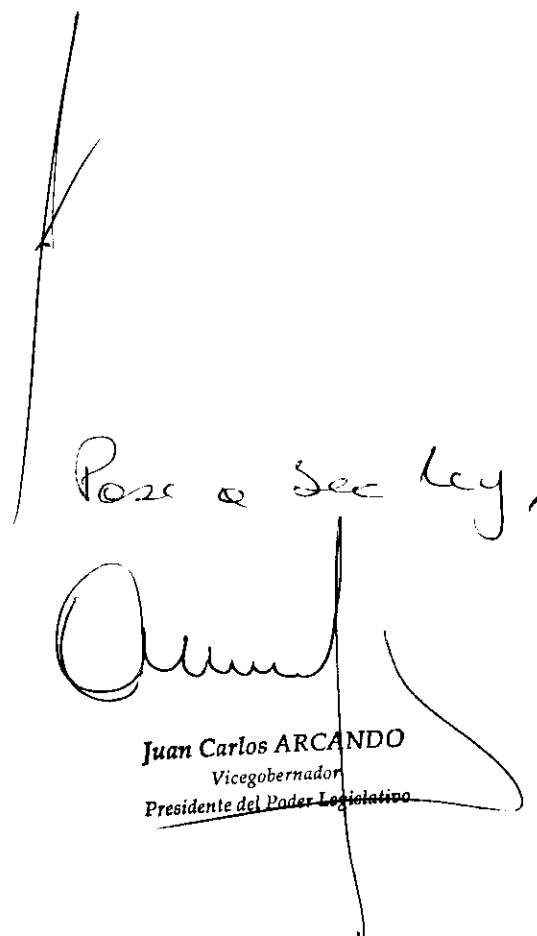 Pase a Sec Leg.
Juan Carlos ARCANDO
Vicegobernador
Presidente del Poder Legislativo